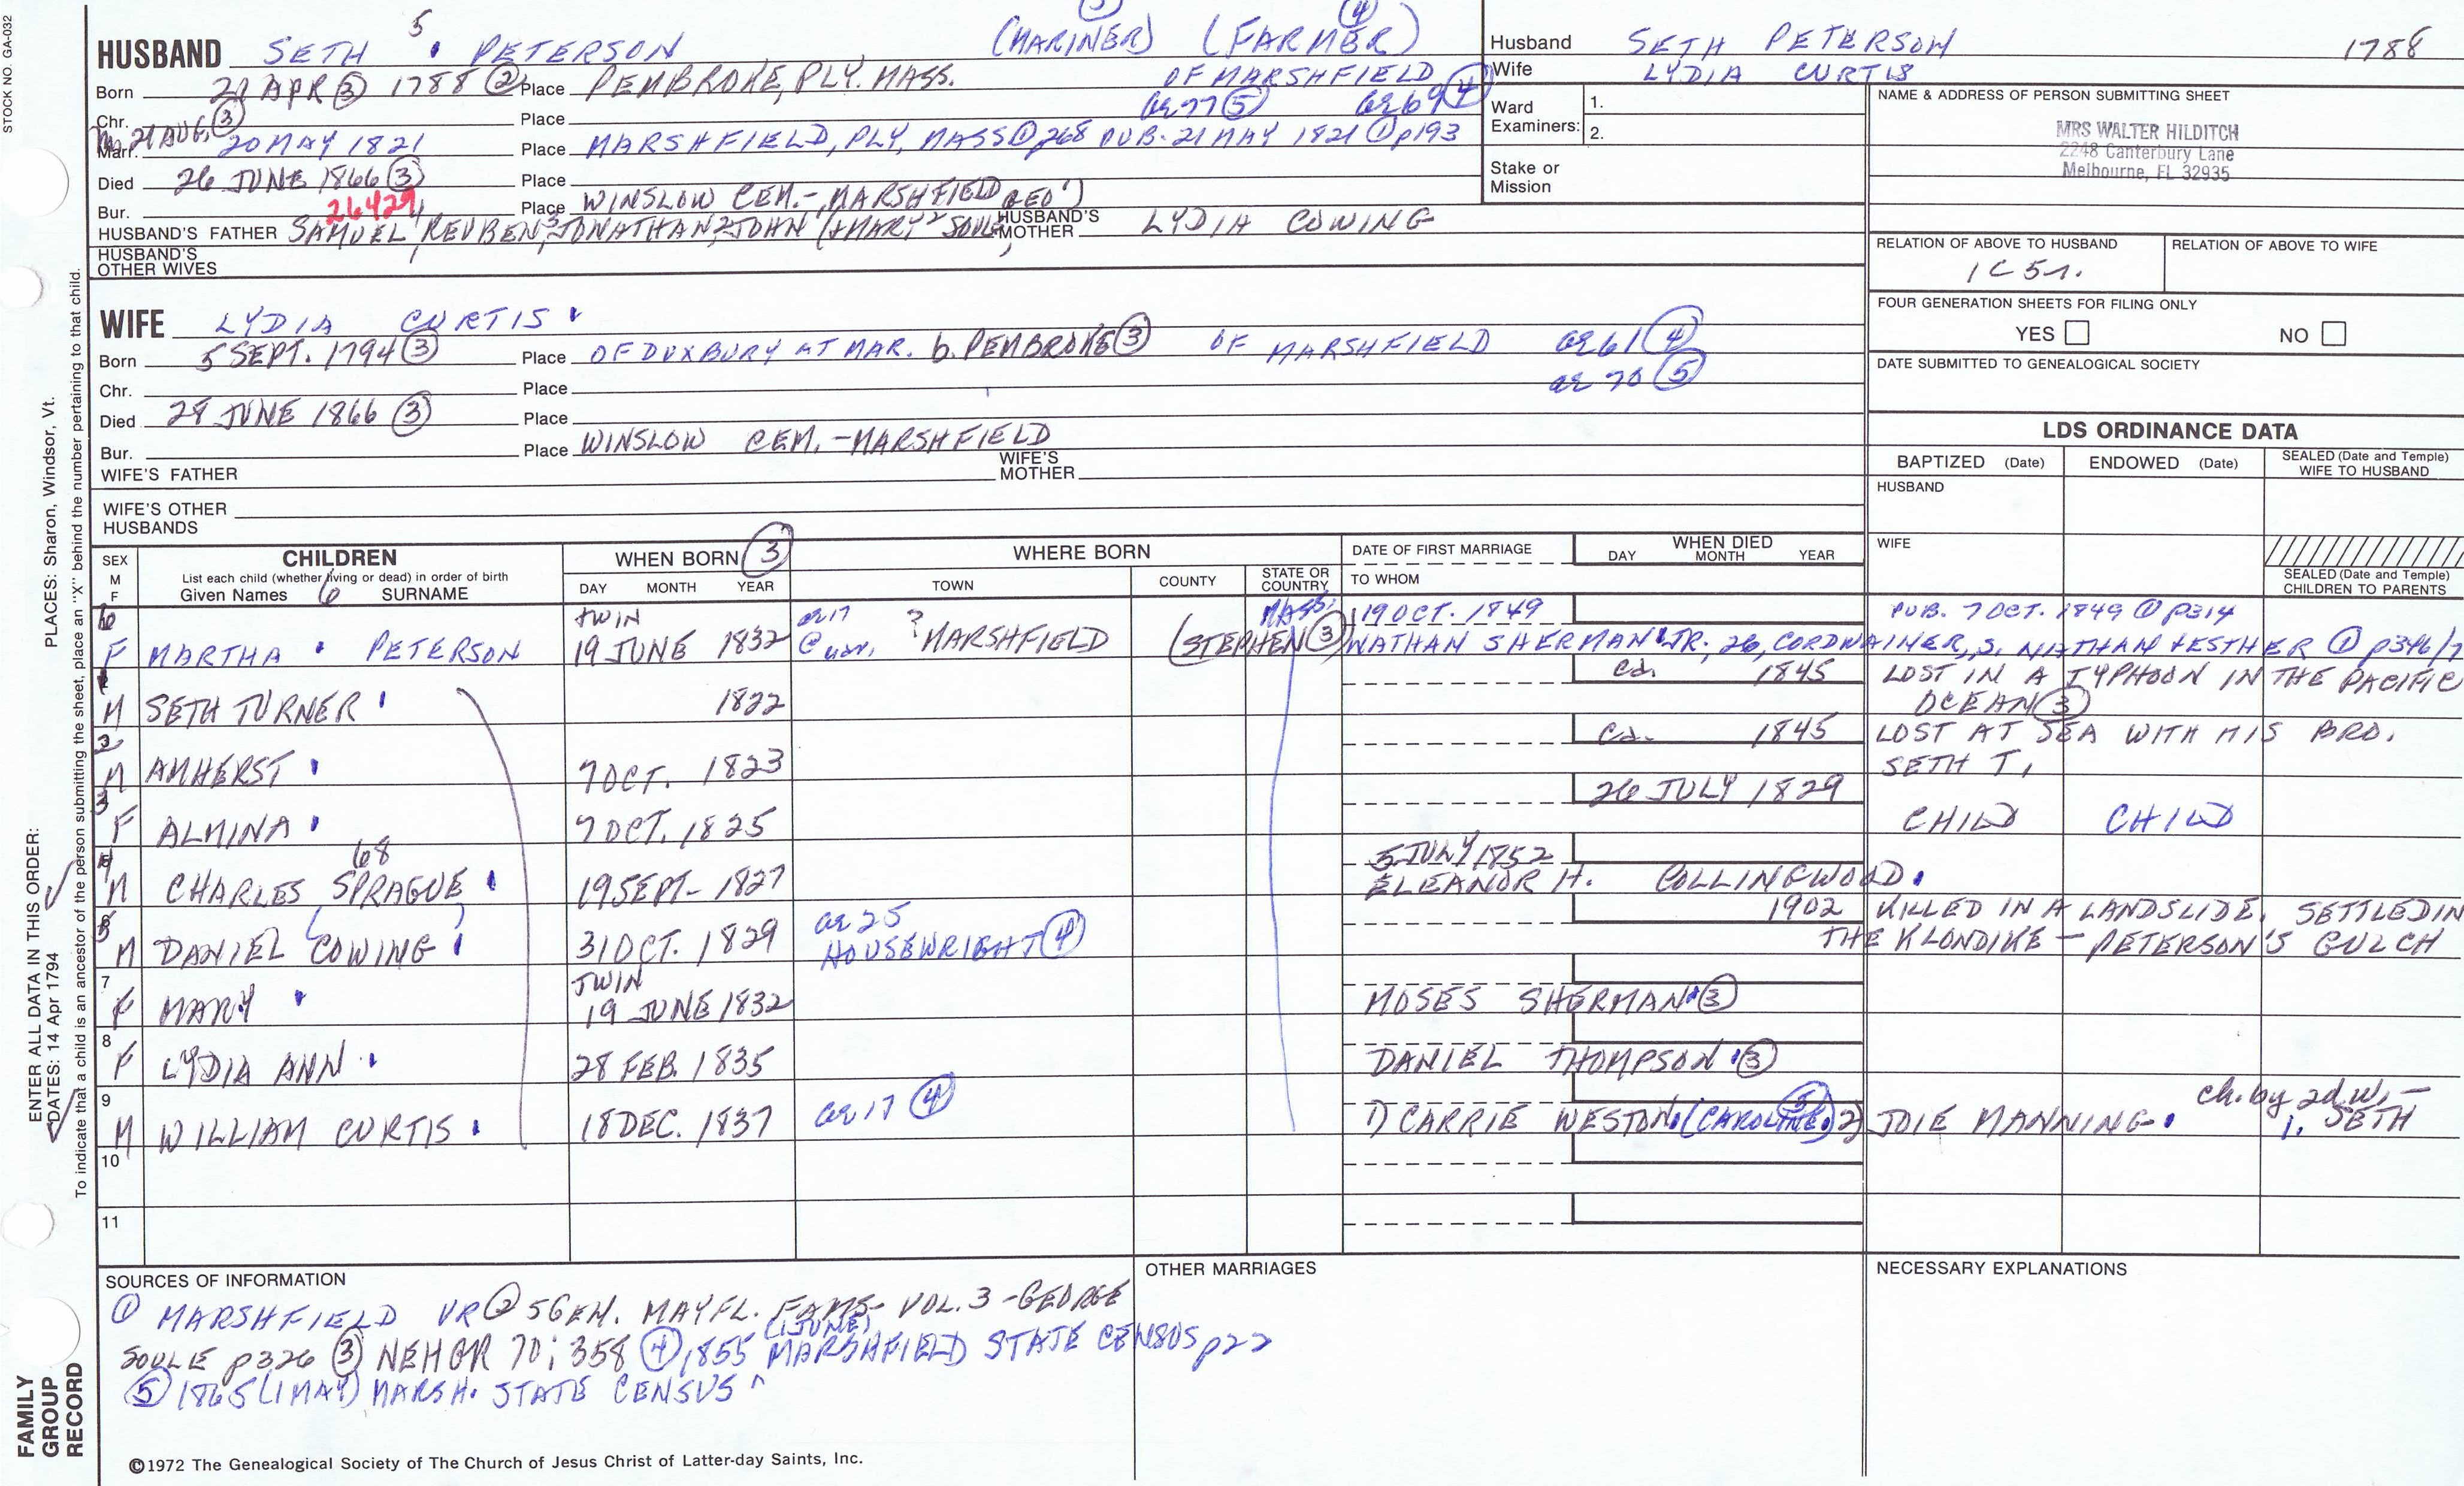 STOCK NO. GA-032
5 (3) (4)
HUSBAND SETH PETERSON (MARINER) (FARMER)
Born APR (3) 1788 (2) Place PEMBROKE, PLY. MASS. OF MARSHFIELD
Chr. Place ae 77 (5) ae 69 (4)
m. 21 AUG. (3)
Marr. 20 MAY 1821 Place MARSHFIELD, PLY, MASS (1) p268 PUB. 21 MAY 1821 (1) p193
Died 26 JUNE 1866 (3) Place
26429
Bur. Place WINSLOW CEM. - MARSHFIELD
HUSBAND'S FATHER SAMUEL 4, REUBEN 3, JONATHAN 2, JOHN 1 (+ MARY 2 SOULE, GEO 1) HUSBAND'S MOTHER LYDIA COWING
HUSBAND'S OTHER WIVES
WIFE LYDIA CURTIS
Born 5 SEPT. 1794 (3) Place OF DUXBURY AT MAR. b. PEMBROKE (3) OF MARSHFIELD ae 61 (4)
Chr. Place ae 70 (5)
Died 28 JUNE 1866 (3) Place
Bur. Place WINSLOW CEM. - MARSHFIELD
WIFE'S FATHER WIFE'S MOTHER
WIFE'S OTHER HUSBANDS
Husband SETH PETERSON 1788
Wife LYDIA CURTIS
Ward Examiners: 1.
2.
Stake or Mission
NAME & ADDRESS OF PERSON SUBMITTING SHEET
MRS WALTER HILDITCH
2248 Canterbury Lane
Melbourne, FL 32935
RELATION OF ABOVE TO HUSBAND RELATION OF ABOVE TO WIFE
1C 5r.
FOUR GENERATION SHEETS FOR FILING ONLY
YES NO
DATE SUBMITTED TO GENEALOGICAL SOCIETY
LDS ORDINANCE DATA
BAPTIZED (Date) ENDOWED (Date) SEALED (Date and Temple) WIFE TO HUSBAND
HUSBAND
WIFE
SEALED (Date and Temple) CHILDREN TO PARENTS
SEX M F
CHILDREN
List each child (whether living or dead) in order of birth
Given Names 6 SURNAME
WHEN BORN (3)
DAY MONTH YEAR
WHERE BORN
TOWN COUNTY STATE OR COUNTRY
DATE OF FIRST MARRIAGE
TO WHOM
WHEN DIED
DAY MONTH YEAR
6 TWIN ae 17 MASS. 19 OCT. 1849 PUB. 7 OCT. 1849 (1) p314
F MARTHA PETERSON 19 JUNE 1832 @ mar. ? MARSHFIELD (STEPHEN (3) NATHAN SHERMAN JR. 26, CORDWAINER, S. NATHAN + ESTHER (1) p346/7
M SETH TURNER 1822 ca. 1845 LOST IN A TYPHOON IN THE PACIFIC
OCEAN (3)
M AMHERST 7 OCT. 1823 ca. 1845 LOST AT SEA WITH HIS BRO.
SETH T.
F ALMINA 7 OCT. 1825 26 JULY 1829 CHILD CHILD
68
M CHARLES SPRAGUE 19 SEPT - 1827 5 JULY 1852
ELEANOR H. COLLINGWOOD
M DANIEL COWING 31 OCT. 1829 ae 25
HOUSEWRIGHT (4) 1902 KILLED IN A LANDSLIDE. SETTLED IN
THE KLONDIKE - PETERSON'S GULCH
7 TWIN
F MARY 19 JUNE 1832 MOSES SHERMAN (3)
8
F LYDIA ANN 28 FEB. 1835 DANIEL THOMPSON (3)
9
M WILLIAM CURTIS 18 DEC. 1837 ae 17 (4) 1) CARRIE WESTON (CAROLINE (5)) 2) JOIE MANNING ch. by 2d w. -
1. SETH
10
11
SOURCES OF INFORMATION
(1) MARSHFIELD VR (2) 5 GEN. MAYFL. FAMS - VOL. 3 - GEORGE
SOULE p326 (3) NEHGR 70:358 (4) 1855 (1 JUNE) MARSHFIELD STATE CENSUS p22
(5) 1865 (1 MAY) MARSH. STATE CENSUS
OTHER MARRIAGES
NECESSARY EXPLANATIONS
©1972 The Genealogical Society of The Church of Jesus Christ of Latter-day Saints, Inc.
FAMILY GROUP RECORD
ENTER ALL DATA IN THIS ORDER:
DATES: 14 Apr 1794
PLACES: Sharon, Windsor, Vt.
To indicate that a child is an ancestor of the person submitting the sheet, place an "X" behind the number pertaining to that child.